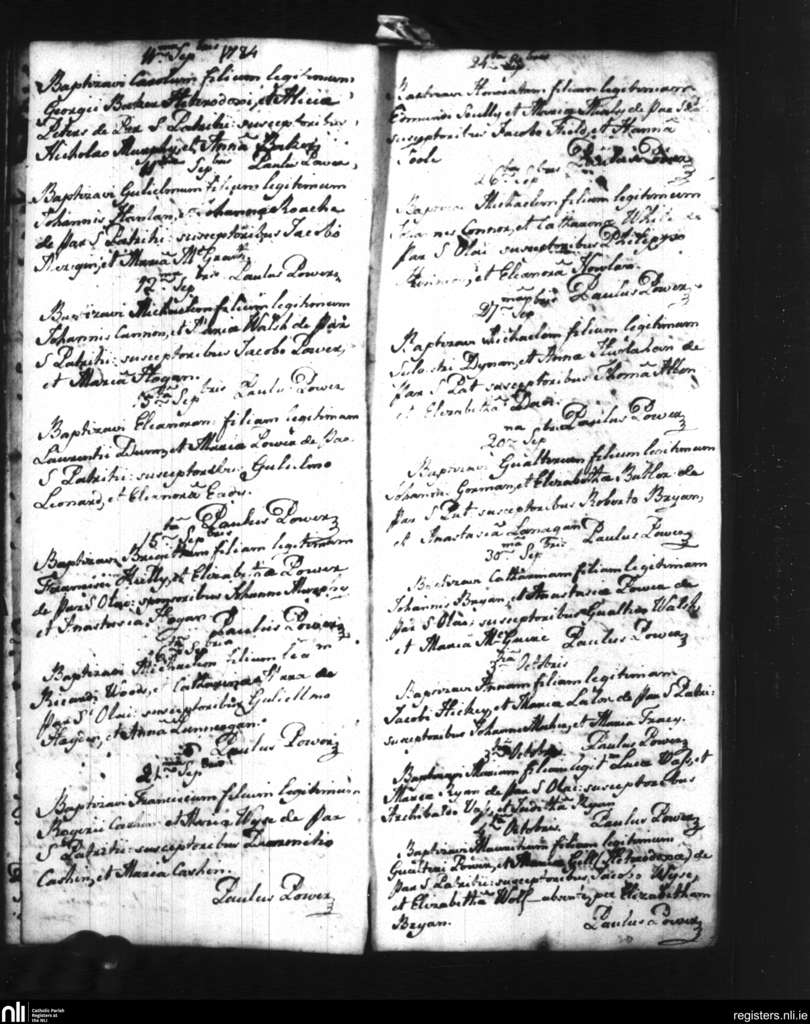 11ma Sepbris 1784
Baptizavi Carolum filium legitimum
Georgii Baker Heterodoxi, et Alicia
Peters de Par S Patritii: susceptoribus,
Nicholao Murphy, et Anna Baker
11ma Sepbris Paulus Power
Baptizavi Gulielmum filium legitimum
Johannis Hanlan, et Johanna Roache
de Par S Patritii: susceptoribus Jacobo
et Maria Mc Grath
12ma Sepbris Paulus Power
Baptizavi Michaelem filium legitimum
Johannis Cannon, et Maria Walsh de Par
S Patritii: susceptoribus Jacobo Power,
et Maria Hogan.
Sepbris Paulus Power
Baptizavi Eleanoram filiam legitimam
Laurentii Dunn, et Maria Power de Par
S Patritii: susceptoribus Gulielmo
Leonard, et Eleanora
Paulus Power
15ta Sepbris
Baptizavi Brigettam filiam legitimam
Francisci Reilly, et Elizabetha Power
de Par S Olai: sponsoribus Johanne Murphy
et Anastasia Hogan Paulus Power
Sepbris
Baptizavi Michaelem filium leg m
Ricardi Woods, et Catharina de
Par S Olai: susceptoribus Gulielmo
Hayden, et Anna Lannergan.
Paulus Power
21ma Sepbris
Baptizavi Franciscum filium legitimum
Rogerii Cashin et Maria Wyse de Par
S Patritii: susceptoribus Demmetrio
Cashin, et Maria Cashen.
Paulus Power
24ta Sepbris
Baptizavi Honoratam filiam legitimam
Edmundi Scully et Maria de Par
susceptoribus Jacobo Field, et Hanna
Toole
Paulus Power
26ta Sepbris
Baptizavi Michaelem filium legitimum
Johannis Connor, et Catharina White de
Par S Olai susceptoribus Philippo
et Eleanora Howlan.
Paulus Power
27ma Sepbris
Baptizavi Michaelem filium legitimum
Dynan, et Anna de
Par S Pat susceptoribus Thoma Allen
et Elizabetha
Paulus Power
Sepbris
Baptizavi Gualterum filium legitimum
Johannis Gorman, et Elizabetha Butler de
Par S Pat susceptoribus Roberto Bryan,
et Anastasia Lanagan
30ma Sepbris Paulus Power
Baptizavi Catharinam filiam legitimam
Johannis Bryan, et Anastasia Power de
Par S Olai: susceptoribus Gualtero Walsh,
et Maria Mc Paulus Power
3tia Octobris
Baptizavi Annam filiam legitimam
Jacobi Hickey, et Maria Lalor de Par S Patri:
susceptoribus Johanne Maher, et Maria Tracy.
3tia Octobris. Paulus Power
Baptizavi Mariam filiam legitm Luca Wass, et
Maria Ryan de Par S Olai: susceptoribus
Archibaldo Wass, et Juditha Ryan
Octobris. Paulus Power
Baptizavi Mauritium filium legitimum
Gualteri Power, et (Heterodoxa) de
Par S Patritii: susceptoribus Jacobo Wyse,
et Elizabetha Wolf absente, per Elizabetham
Bryan.
Paulus Power
nli
Catholic Parish
Registers at
the NLI
registers.nli.ie